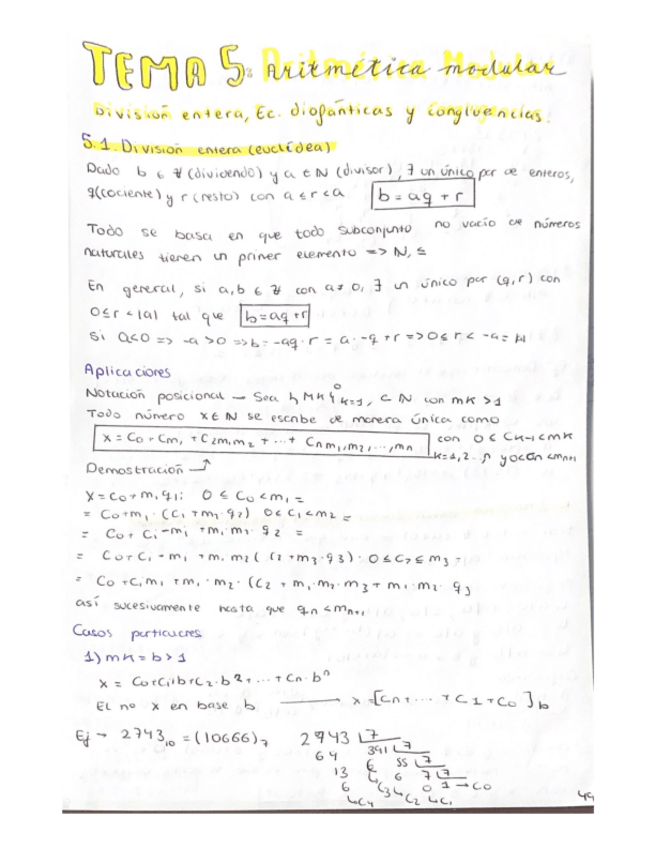 TEMA 5: Aritmética modular
División entera, Ec. diofánticas y Congruencias.
5.1. División entera (euclídea)
Dado b ∈ ℤ (dividendo) y a ∈ ℕ (divisor), ∃ un único par de enteros,
q(cociente) y r (resto) con a ≤ r < a b = aq + r
Todo se basa en que todo subconjunto no vacío de números
naturales tienen un primer elemento => ℕ, ≤
En general, si a, b ∈ ℤ con a ≠ 0, ∃ un único par (q, r) con
0 ≤ r < |a| tal que b = aq + r
Si a<0 => -a > 0 => b = -aq · r = a · -q + r => 0 ≤ r < -a = |a|
Aplicaciones
Notación posicional — Sea {mk} k=1, ⊂ ℕ con mk > 1
Todo número x ∈ ℕ se escribe de manera única como
x = C0 + Cm1 + C2m1m2 + ... + Cn m1, m2, ..., mn con 0 ≤ Ck-1 < mk
k=1,2...n y 0<Cn<mn+1
Demostración
x = C0 + m1 q1; 0 ≤ C0 < m1 =
= C0 + m1 · (C1 + m2 · q2) 0 ≤ C1 ≤ m2 =
= C0 + C1 · m1 + m1 · m1 · q2 =
= C0 + C1 · m1 + m1 m2 (C2 + m3 · q3) · 0 ≤ C2 ≤ m3 =
= C0 + C1 m1 + m1 · m2 · (C2 + m1 · m2 · m3 + m1 · m2 · q3
así sucesivamente hasta que qn < mn+1
Casos particulares
1) mk = b > 1
x = C0 + C1 b + C2 · b² + ... + Cn · bⁿ
El nº x en base b → x = [Cn + ... + C1 + C0]b
Ej → 2743₁₀ = (10666)₇ 2743 | 7
64 391 | 7
13 6 55 | 7
6 C3 6 7 | 7
C4 C2 0 1 → C0
C1
49